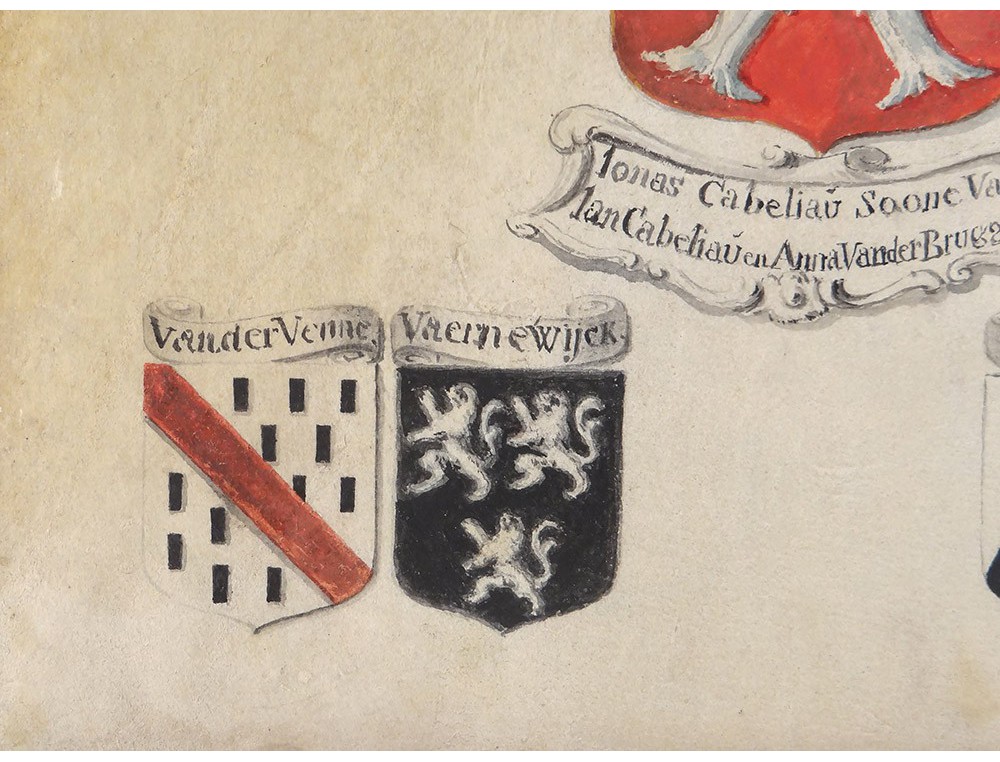 Ionas Cabeliaŭ Soone Va
Ian Cabeliaŭ en Anna Vander Brugg
Vander Venne.
Vaernewijck.